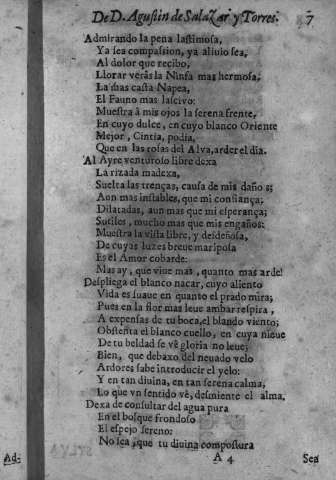 De D. Agustin de Salazar y Torres. 7
Admirando la pena lastimosa,
Ya sea compassion, ya aliuio sea,
Al dolor que recibo,
Llorar veràs la Ninfa mas hermosa,
La mas casta Napea,
El Fauno mas lascivo:
Muestra à mis ojos la serena frente,
En cuyo dulce, en cuyo blanco Oriente
Mejor, Cintia, podia,
Que en las rosas del Alva, arder el dia.
Al Ayre venturoso libre dexa
La rizada madexa,
Suelta las trenças, causa de mis daños;
Aun mas instables, que mi confiança;
Dilatadas, aun mas que mi esperança;
Sutiles, mucho mas que mis engaños:
Muestra la vista libre, y desdeñosa,
De cuyas luzes breue mariposa
Es el Amor cobarde:
Mas ay, que viue mas, quanto mas arde!
Despliega el blanco nacar, cuyo aliento
Vida es suave en quanto el prado mira;
Pues en la flor mas leue ambar respira,
A expensas de tu boca, el blando viento;
Obstenta el blanco cuello, en cuya nieue
De tu beldad se vè gloria no leue;
Bien, que debaxo del neuado velo
Ardores sabe introducir el yelo:
Y en tan diuina, en tan serena calma,
Lo que vn sentido vè, desmiente el alma.
Dexa de consultar del agua pura
En el bosque frondoso
El espejo sereno:
No sea, que tu diuina compostura
Ad-
A 4
Sea